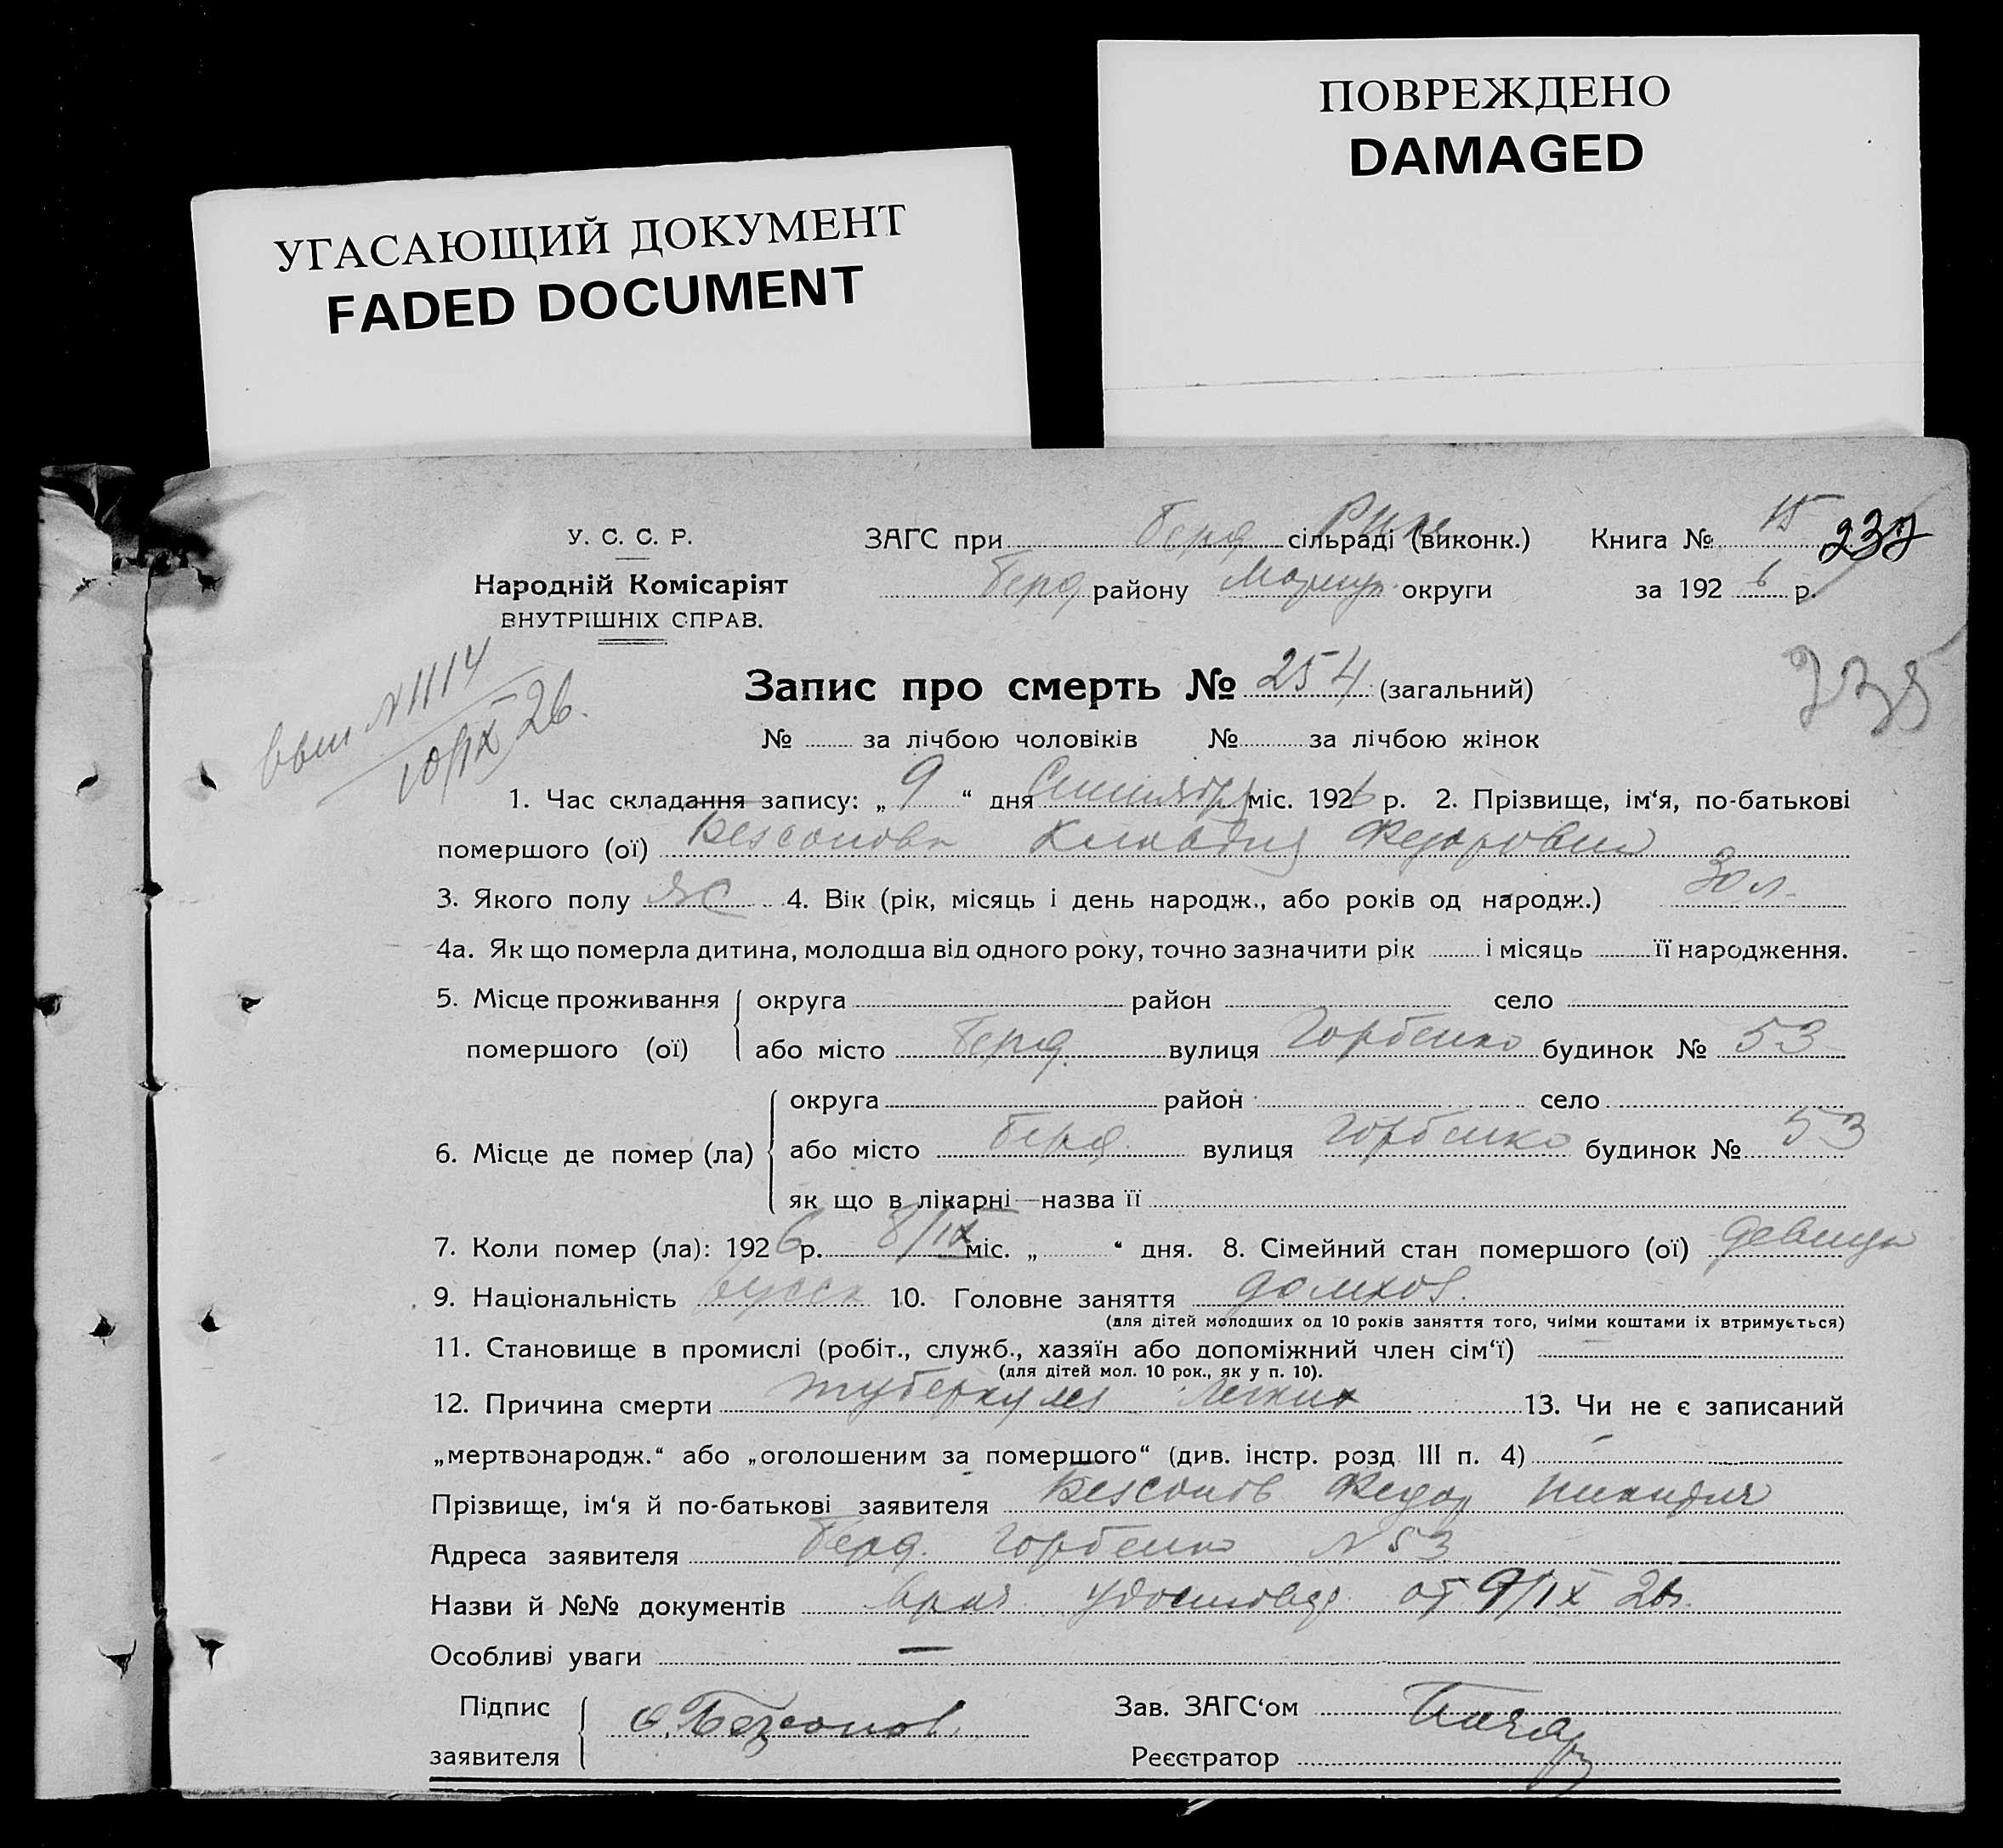 ПОВРЕЖДЕНО
DAMAGED
УГАСАЮЩИЙ ДОКУМЕНТ
FADED DOCUMENT
У. С. С. Р.
Народній Комісаріят
ВНУТРІШНІХ СПРАВ.
ЗАГС при Берд сільраді (виконк.) Книга № 15
Берд району Мариуп. округи за 1926 р.
235
№ 1114
10/IX 26.
Запис про смерть № 254 (загальний)
№ за лічбою чоловіків № за лічбою жінок
1. Час складання запису: „9“ дня Сентября міс. 1926 р. 2. Прізвище, ім‘я, по-батькові
помершого (ої) Безсонова Клавдия Федоровна
3. Якого полу Ж 4. Вік (рік, місяць і день народж., або років од народж.) 30 л.
4а. Як що померла дитина, молодша від одного року, точно зазначити рік і місяць її народження.
5. Місце проживання помершого (ої) округа район село
або місто Берд. вулиця Горбенко будинок № 53
6. Місце де помер (ла) округа район село
або місто Берд. вулиця Горбенко будинок № 53
як що в лікарні—назва її
7. Коли помер (ла): 1926 р. 8/IX міс. „ “ дня. 8. Сімейний стан помершого (ої) девица
9. Національність русск 10. Головне заняття домхоз.
(для дітей молодших од 10 років заняття того, чиїми коштами їх втримується)
11. Становище в промислі (робіт., служб., хазяїн або допоміжний член сім‘ї) —
(для дітей мол. 10 рок., як у п. 10).
12. Причина смерти туберкулез легких 13. Чи не є записаний
„мертвонародж.“ або „оголошеним за помершого“ (див. інстр. розд III п. 4) —
Прізвище, ім‘я й по-батькові заявителя Безсонов Федор
Адреса заявителя Берд. Горбенко № 53
Назви й №№ документів врач. удостовер. от 9/IX 26г.
Особливі уваги —
Підпис заявителя Ф. Безсонов Зав. ЗАГС‘ом
Реєстратор